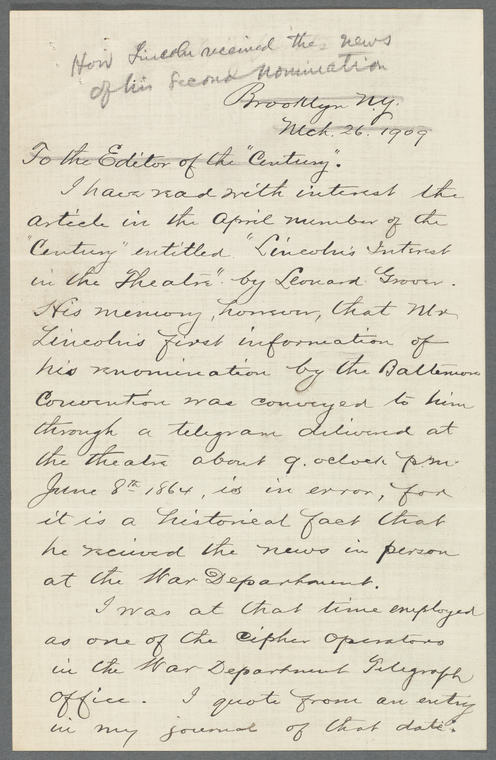 How Lincoln received the news
of his Second Nomination
Brooklyn N.Y.
Mch. 26. 1909
To the Editor of the "Century".
I have read with interest the
article in the April number of the
"Century" entitled "Lincoln's Interest
in the Theatre" by Leonard Grover.
His memory, however, that Mr
Lincoln's first information of
his renomination by the Baltimore
Convention was conveyed to him
through a telegram delivered at
the theatre about 9. oclock p.m.
June 8th 1864, is in error, for
it is a historical fact that
he received the news in person
at the War Department.
I was at that time employed
as one of the cipher operators
in the War Department Telegraph
Office. I quote from an entry
in my journal of that date.